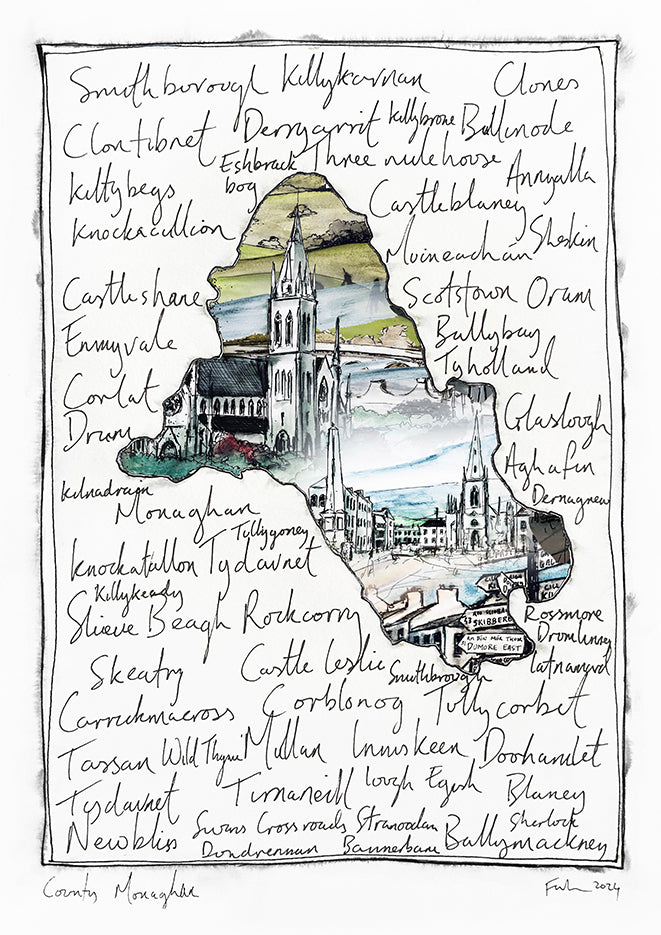 Smithborough Killykarnan Clones
Clontibret Derrygarrit Killybrone Ballinode
Eshbrack bog Three mile house Annyalla
Killybegs Castleblaney
Knockacullion Muineachán Sheskin
Castleshane Scotstown Oram
Emmyvale Ballybay
Corlat Tyholland
Drum Glaslough
Aghafin
Kilnadrain Dernagrew
Monaghan Tullygoney
Knockatallon Tydavnet
Killykeady
Slieve Beagh Rockcorry Rossmore
Drumlinney
Skeatry Castle Leslie Smithbrough Latnamard
Carrickmacross Corblonog Tullycorbet
Tassan Wild Thyme Mullan Inniskeen Doohamlet
Tydavnet Tirnaneill Lough Egish Blaney
Newbliss Swans Crossroads Stranoodan Sherlock
Dundrennan Bannerbane Ballymackney
SKIBBERE
AN DÚN MÓR THOIR
DUMORE EAST
County Monaghan
2024